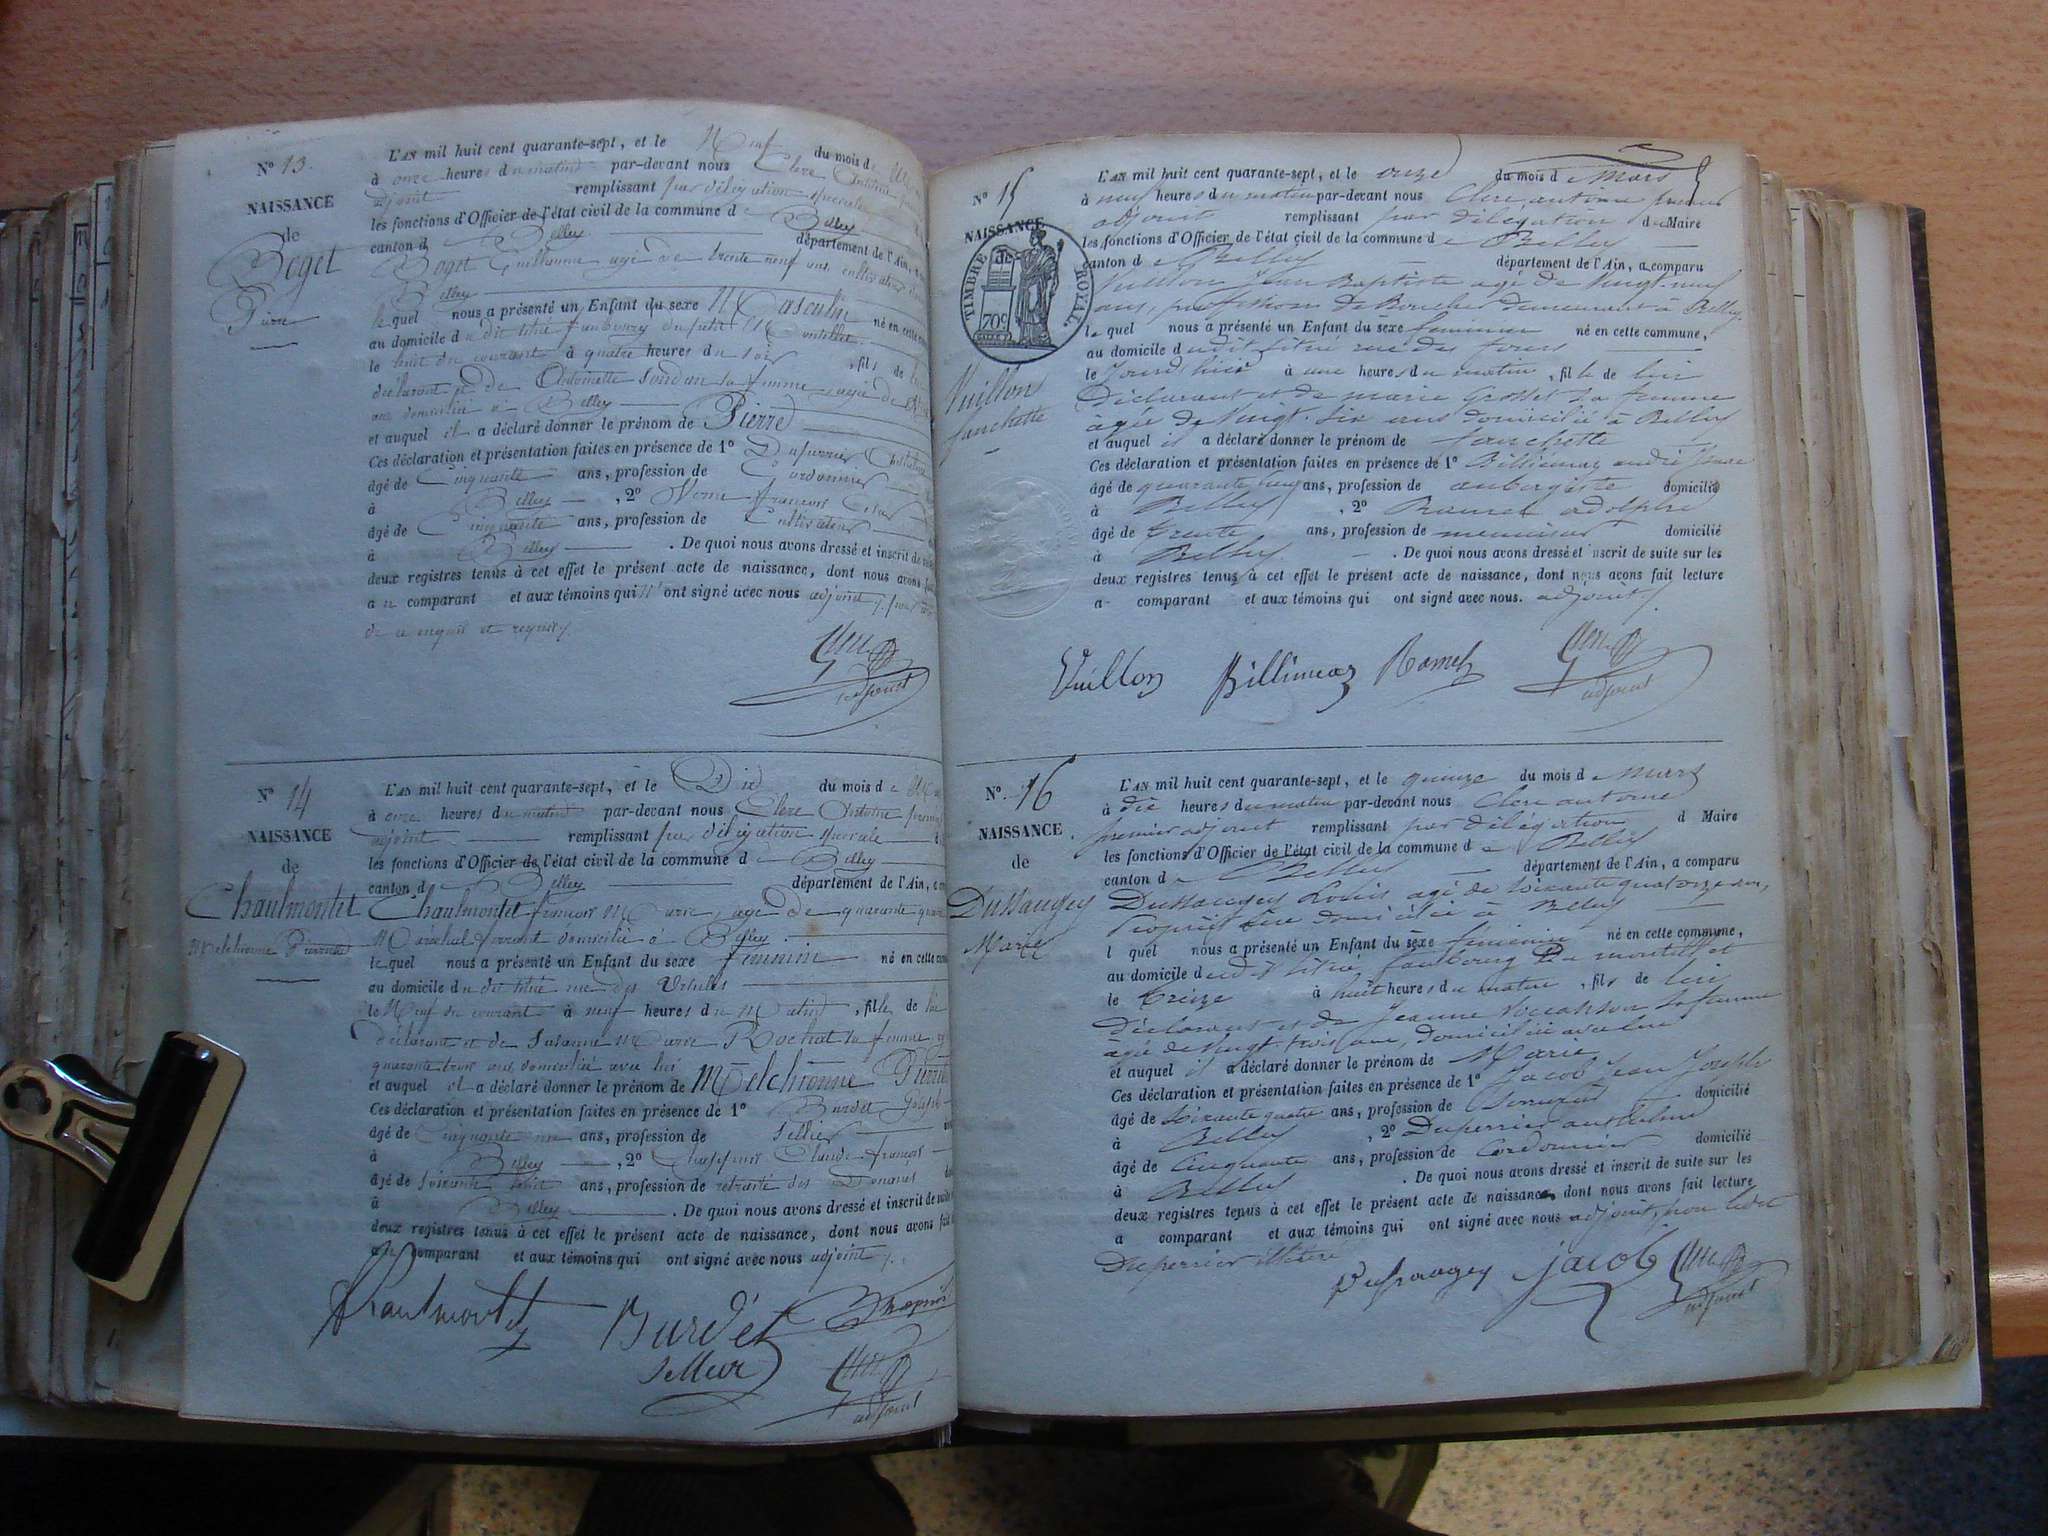 N° 13.
NAISSANCE
de
Boget
Pierre
L'AN mil huit cent quarante-sept, et le Neuf du mois de
à onze heures du matin par-devant nous Clerc Antoine
adjoint remplissant par délégation spéciale
les fonctions d'Officier de l'état civil de la commune de Belley
canton de Belley département de l'Ain, a
Boget Guillaume agé de trente neuf ans cultivateur
Belley
le quel nous a présenté un Enfant du sexe Masculin né en cette
au domicile du dit titué faubourg du petit
le huit du courant à quatre heures du soir, fils de
déclarant et de Antoinette sa femme agée de
ans domiciliée à Belley
et auquel il a déclaré donner le prénom de Pierre
Ces déclaration et présentation faites en présence de 1° Duperrier
âgé de Cinquante ans, profession de Cordonnier
à Belley, 2° françois
âgé de Cinquante ans, profession de Cultivateur
à Belley. De quoi nous avons dressé et inscrit de
deux registres tenus à cet effet le présent acte de naissance, dont nous avons
au comparant et aux témoins qui n'ont signé avec nous adjoint
de ce enquis et requis
adjoint
N° 14
NAISSANCE
de
Chaulmontet
Melchionne Pierrette
L'AN mil huit cent quarante-sept, et le Dix du mois de
à onze heures du matin par-devant nous Clerc Antoine premier
adjoint remplissant par délégation spéciale
les fonctions d'Officier de l'état civil de la commune de Belley
canton de Belley département de l'Ain, a
Chaulmontet françois Marie, agé de quarante quatre
Maréchal ferrant domicilié à Belley.
le quel nous a présenté un Enfant du sexe féminin né en cette
au domicile du dit titué rue des Ursules
le Neuf du courant à neuf heures du Matin, fille de lui
déclarant et de Susanne Marie Rochat sa femme
quarante trois ans domiciliée avec lui
et auquel il a déclaré donner le prénom de Melchionne
Ces déclaration et présentation faites en présence de 1° Burdet Joseph
âgé de Cinquante ans, profession de Sellier
à Belley, 2° Claude françois
âgé de soixante ans, profession de retraité des Douanes
à Belley. De quoi nous avons dressé et inscrit de suite
deux registres tenus à cet effet le présent acte de naissance, dont nous avons fait
au comparant et aux témoins qui ont signé avec nous adjoint
Chaulmontet Burdet
Selleur
adjoint
N° 15
NAISSANCE
TIMBRE ROYAL
70c
Vuillon
fanchette
L'AN mil huit cent quarante-sept, et le onze du mois de Mars
à neuf heures du matin par-devant nous Clerc antoine premier
adjoint remplissant par délégation du Maire
les fonctions d'Officier de l'état civil de la commune de Belley
canton de Belley département de l'Ain, a comparu
Vuillon Jean Baptiste agé de Vingt-neuf
ans, profession de Boucher demeurant à Belley
le quel nous a présenté un Enfant du sexe féminin né en cette commune,
au domicile dudit titué rue des fours
le jourd'hui à une heures du matin, fille de lui
Déclarant et de marie Grosset sa femme
agée de Vingt-six ans domicilié à Belley
et auquel il a déclaré donner le prénom de fanchette
Ces déclaration et présentation faites en présence de 1° Billiémaz andré
âgé de quarante ans, profession de aubergiste domicilié
à Belley, 2° Ramel adolphe
âgé de Trente ans, profession de menuisier domicilié
à Belley. De quoi nous avons dressé et inscrit de suite sur les
deux registres tenus à cet effet le présent acte de naissance, dont nous avons fait lecture
a comparant et aux témoins qui ont signé avec nous. adjoint
Vuillon Billiémaz Ramel
adjoint
N° 16
NAISSANCE
de
Dussaugey
Marie
L'AN mil huit cent quarante-sept, et le quinze du mois de mars
à dix heures du matin par-devant nous Clerc antoine
premier adjoint remplissant par délégation d Maire
les fonctions d'Officier de l'état civil de la commune de Belley
canton de Belley département de l'Ain, a comparu
Dussaugey Louis agé de soixante quatorze ans,
Propriétaire domicilié à Belley
l quel nous a présenté un Enfant du sexe féminin né en cette commune,
au domicile dudit titué faubourg
le treize à huit heures du matin, fils de lui
déclarant et de Jeanne sa femme
agée de Vingt-trois ans, domiciliée avec lui
et auquel il a déclaré donner le prénom de Marie
Ces déclaration et présentation faites en présence de 1° Jacob jean Joseph
âgé de soixante quatre ans, profession de domicilié
à Belley, 2° Duperrier anthelme
âgé de Cinquante ans, profession de Cordonnier domicilié
à Belley. De quoi nous avons dressé et inscrit de suite sur les
deux registres tenus à cet effet le présent acte de naissance, dont nous avons fait lecture
a comparant et aux témoins qui ont signé avec nous adjoint, non ledit
Duperrier illétéré
Dussaugey jacob
adjoint